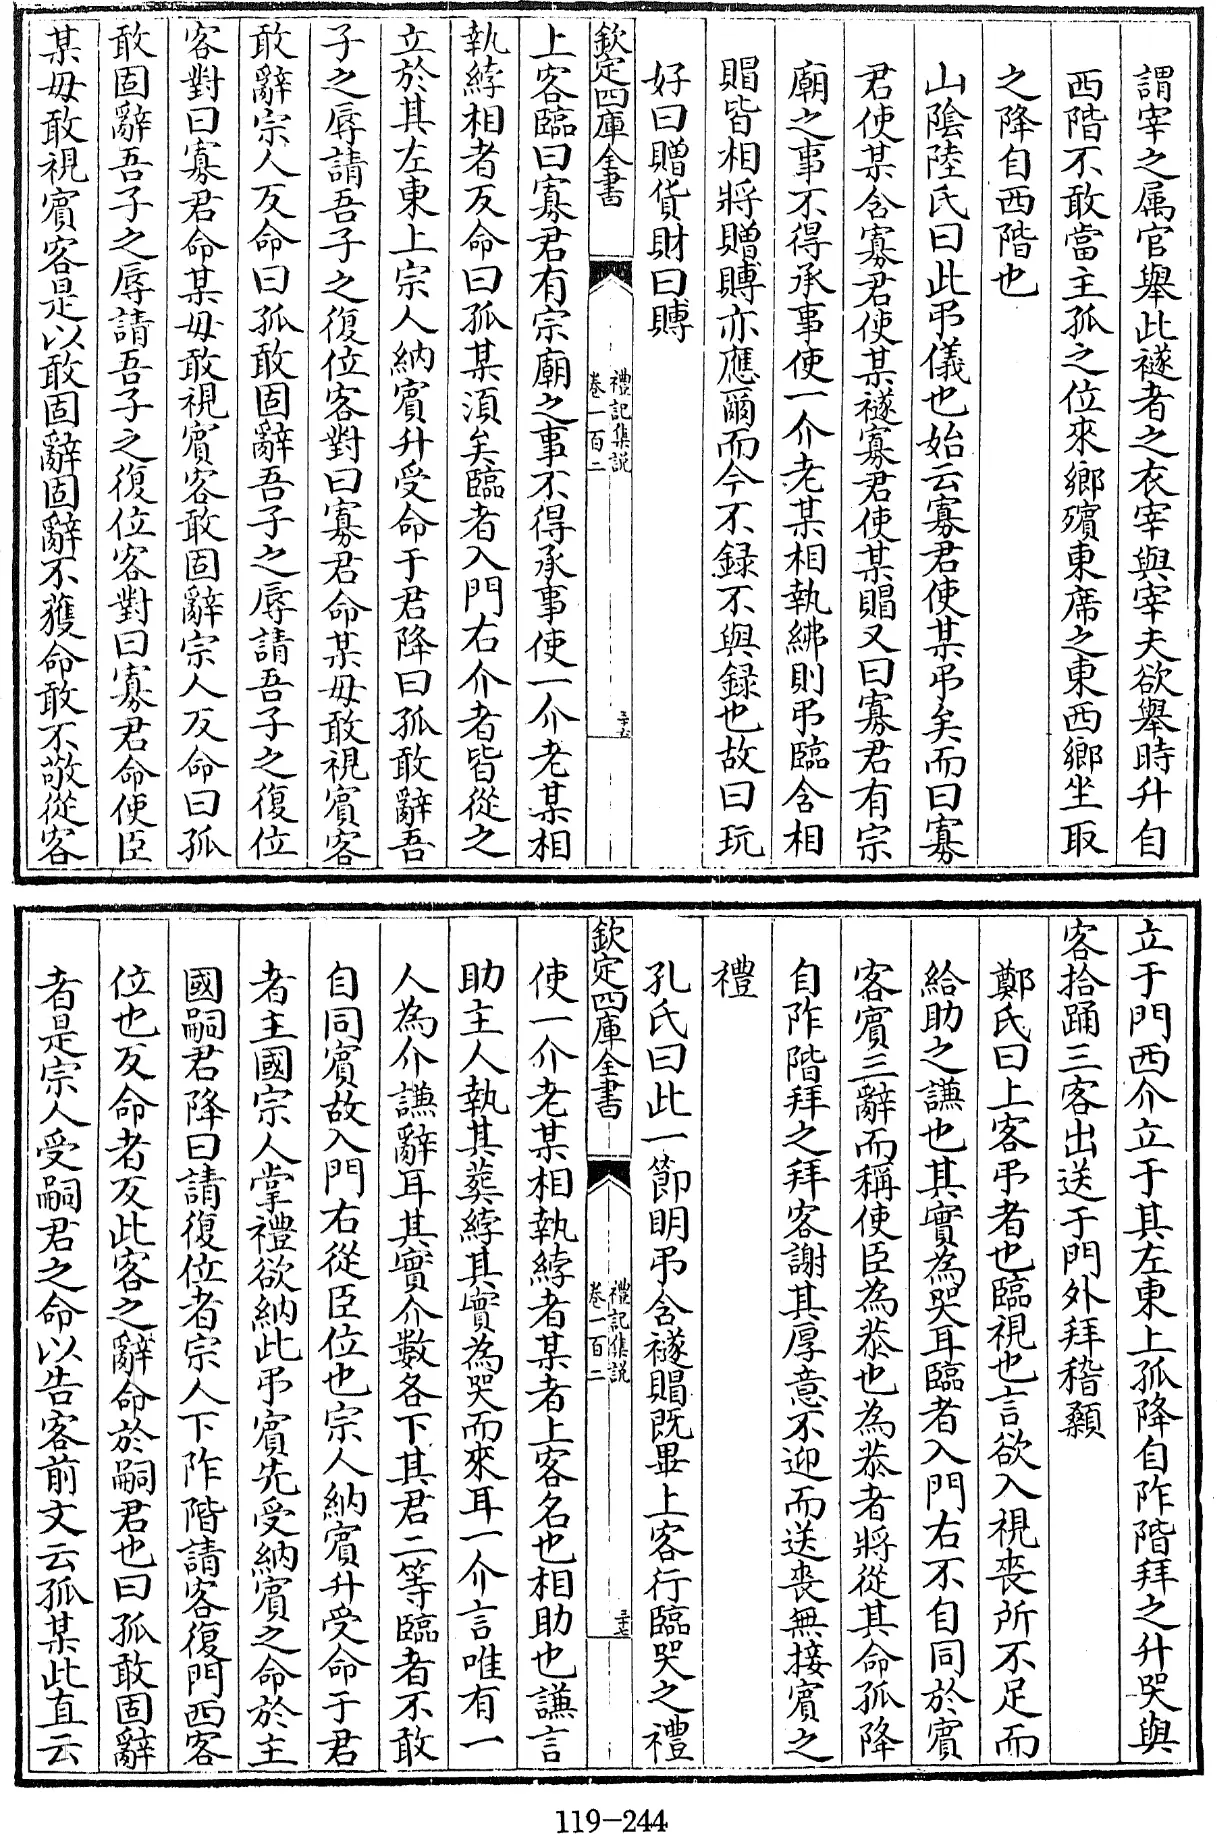 謂宰之屬官舉此襚者之衣宰與宰夫欲舉時升自
西階不敢當主孤之位來鄉殯東席之東西鄉坐取
之降自西階也
山陰陸氏曰此弔儀也始云寡君使某弔矣而曰寡
君使某含寡君使某襚寡君使某賵又曰寡君有宗
廟之事不得承事使一介老某相執紼則弔臨含相
賵皆相將贈賻亦應爾而今不録不與録也故曰玩
好曰贈貨財曰賻
欽定四庫全書
禮記集説
卷一百二
三十六
上客臨曰寡君有宗廟之事不得承事使一介老某相
執綍相者反命曰孤某湏矣臨者入門右介者皆從之
立於其左東上宗人納賓升受命于君降曰孤敢辭吾
子之辱請吾子之復位客對曰寡君命某毋敢視賓客
敢辭宗人反命曰孤敢固辭吾子之辱請吾子之復位
客對曰寡君命某毋敢視賓客敢固辭宗人反命曰孤
敢固辭吾子之辱請吾子之復位客對曰寡君命使臣
某毋敢視賓客是以敢固辭固辭不獲命敢不敬從客
立于門西介立于其左東上孤降自阼階拜之升哭與
客拾踊三客出送于門外拜稽顙
鄭氏曰上客弔者也臨視也言欲入視喪所不足而
給助之謙也其實為哭耳臨者入門右不自同於賓
客賓三辭而稱使臣為恭也為恭者將從其命孤降
自阼階拜之拜客謝其厚意不迎而送喪無接賓之
禮
孔氏曰此一節明弔含襚賵既畢上客行臨哭之禮
欽定四庫全書
禮記集説
卷一百二
三十七
使一介老某相執綍者某者上客名也相助也謙言
助主人執其葬綍其實為哭而來耳一介言唯有一
人為介謙辭耳其實介數各下其君二等臨者不敢
自同賓故入門右從臣位也宗人納賓升受命于君
者主國宗人掌禮欲納此弔賓先受納賓之命於主
國嗣君降曰請復位者宗人下阼階請客復門西客
位也反命者反此客之辭命於嗣君也曰孤敢固辭
者是宗人受嗣君之命以告客前文云孤某此直云
119-244